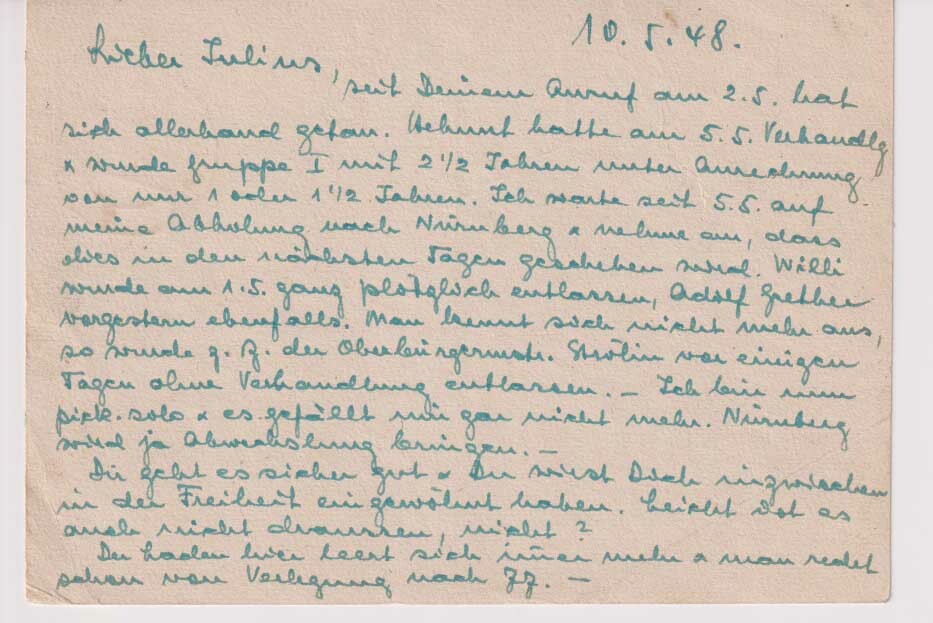 10.5.48.
Lieber Julius,
seit Deinem Anruf am 2.5. hat
sich allerhand getan. Helmut hatte am 5.5. Verhandlg
x wurde Gruppe I mit 2 1/2 Jahren unter Anrechnung
von nur 1 oder 1 1/2 Jahren. Ich warte seit 5.5. auf
meine Abholung nach Nürnberg x nehme an, dass
dies in den nächsten Tagen geschehen wird. Willi
wurde am 1.5. ganz plötzlich entlassen, Adolf Grether
vorgestern ebenfalls. Man kennt sich nicht mehr aus,
so wurde z. B. der Oberbürgermstr. Strölin vor einigen
Tagen ohne Verhandlung entlassen. – Ich bin nun
pick. solo x es gefällt mir gar nicht mehr. Nürnberg
wird ja Abwechslung bringen. –
Dir geht es sicher gut x Du wirst Dich inzwischen
in der Freiheit eingewöhnt haben. Leicht ist es
auch nicht draussen, nicht?
Der Laden hier leert sich immer mehr x man redet
schon von Verlegung nach 77. –